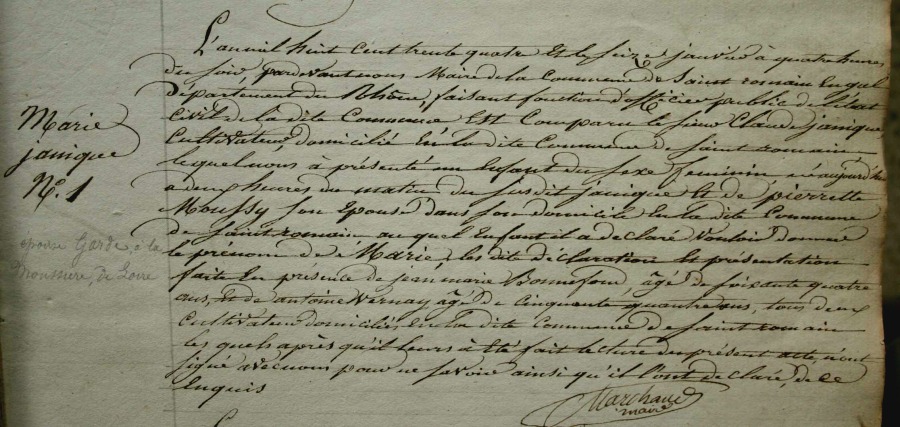 L'an mil huit cent trente quatre Et le seize janvier à quatre heures
du soir pardevant nous Maire de la Commune de Saint romain En gal
Département du Rhône, faisant fonction d'officier public de l'état
civil de la dite Commune Est Comparu le sieur Claude janique
Cultivateur domicilié En la dite Commune de saint romain
lequel nous à présenté un Enfant du sexe feminin né aujourd'hui
a deux heures du matin du susdit janique Et de pierrette
Moussy son Epouse dans son domicile En la dite Commune
de saint romain au quel Enfant il a déclaré vouloir donner
le prénom de Marie, les dite déclaration Et présentation
faite En présence de jean marie Bonnefond, âgé de soixante quatre
ans, Et de antoine Vernay âgé de Cinquante quatre ans, tous deux
Cultivateur domiciliés En la dite Commune de saint romain
les quels après qu'il leurs à été fait lecture du présent acte, n'ont
signé avec nous pour ne savoir ainsi qu'il l'ont déclaré, de ce
Enquis
Marchand
maire
Marie
janique
N.º 1
épouse Garde à la
de Loire